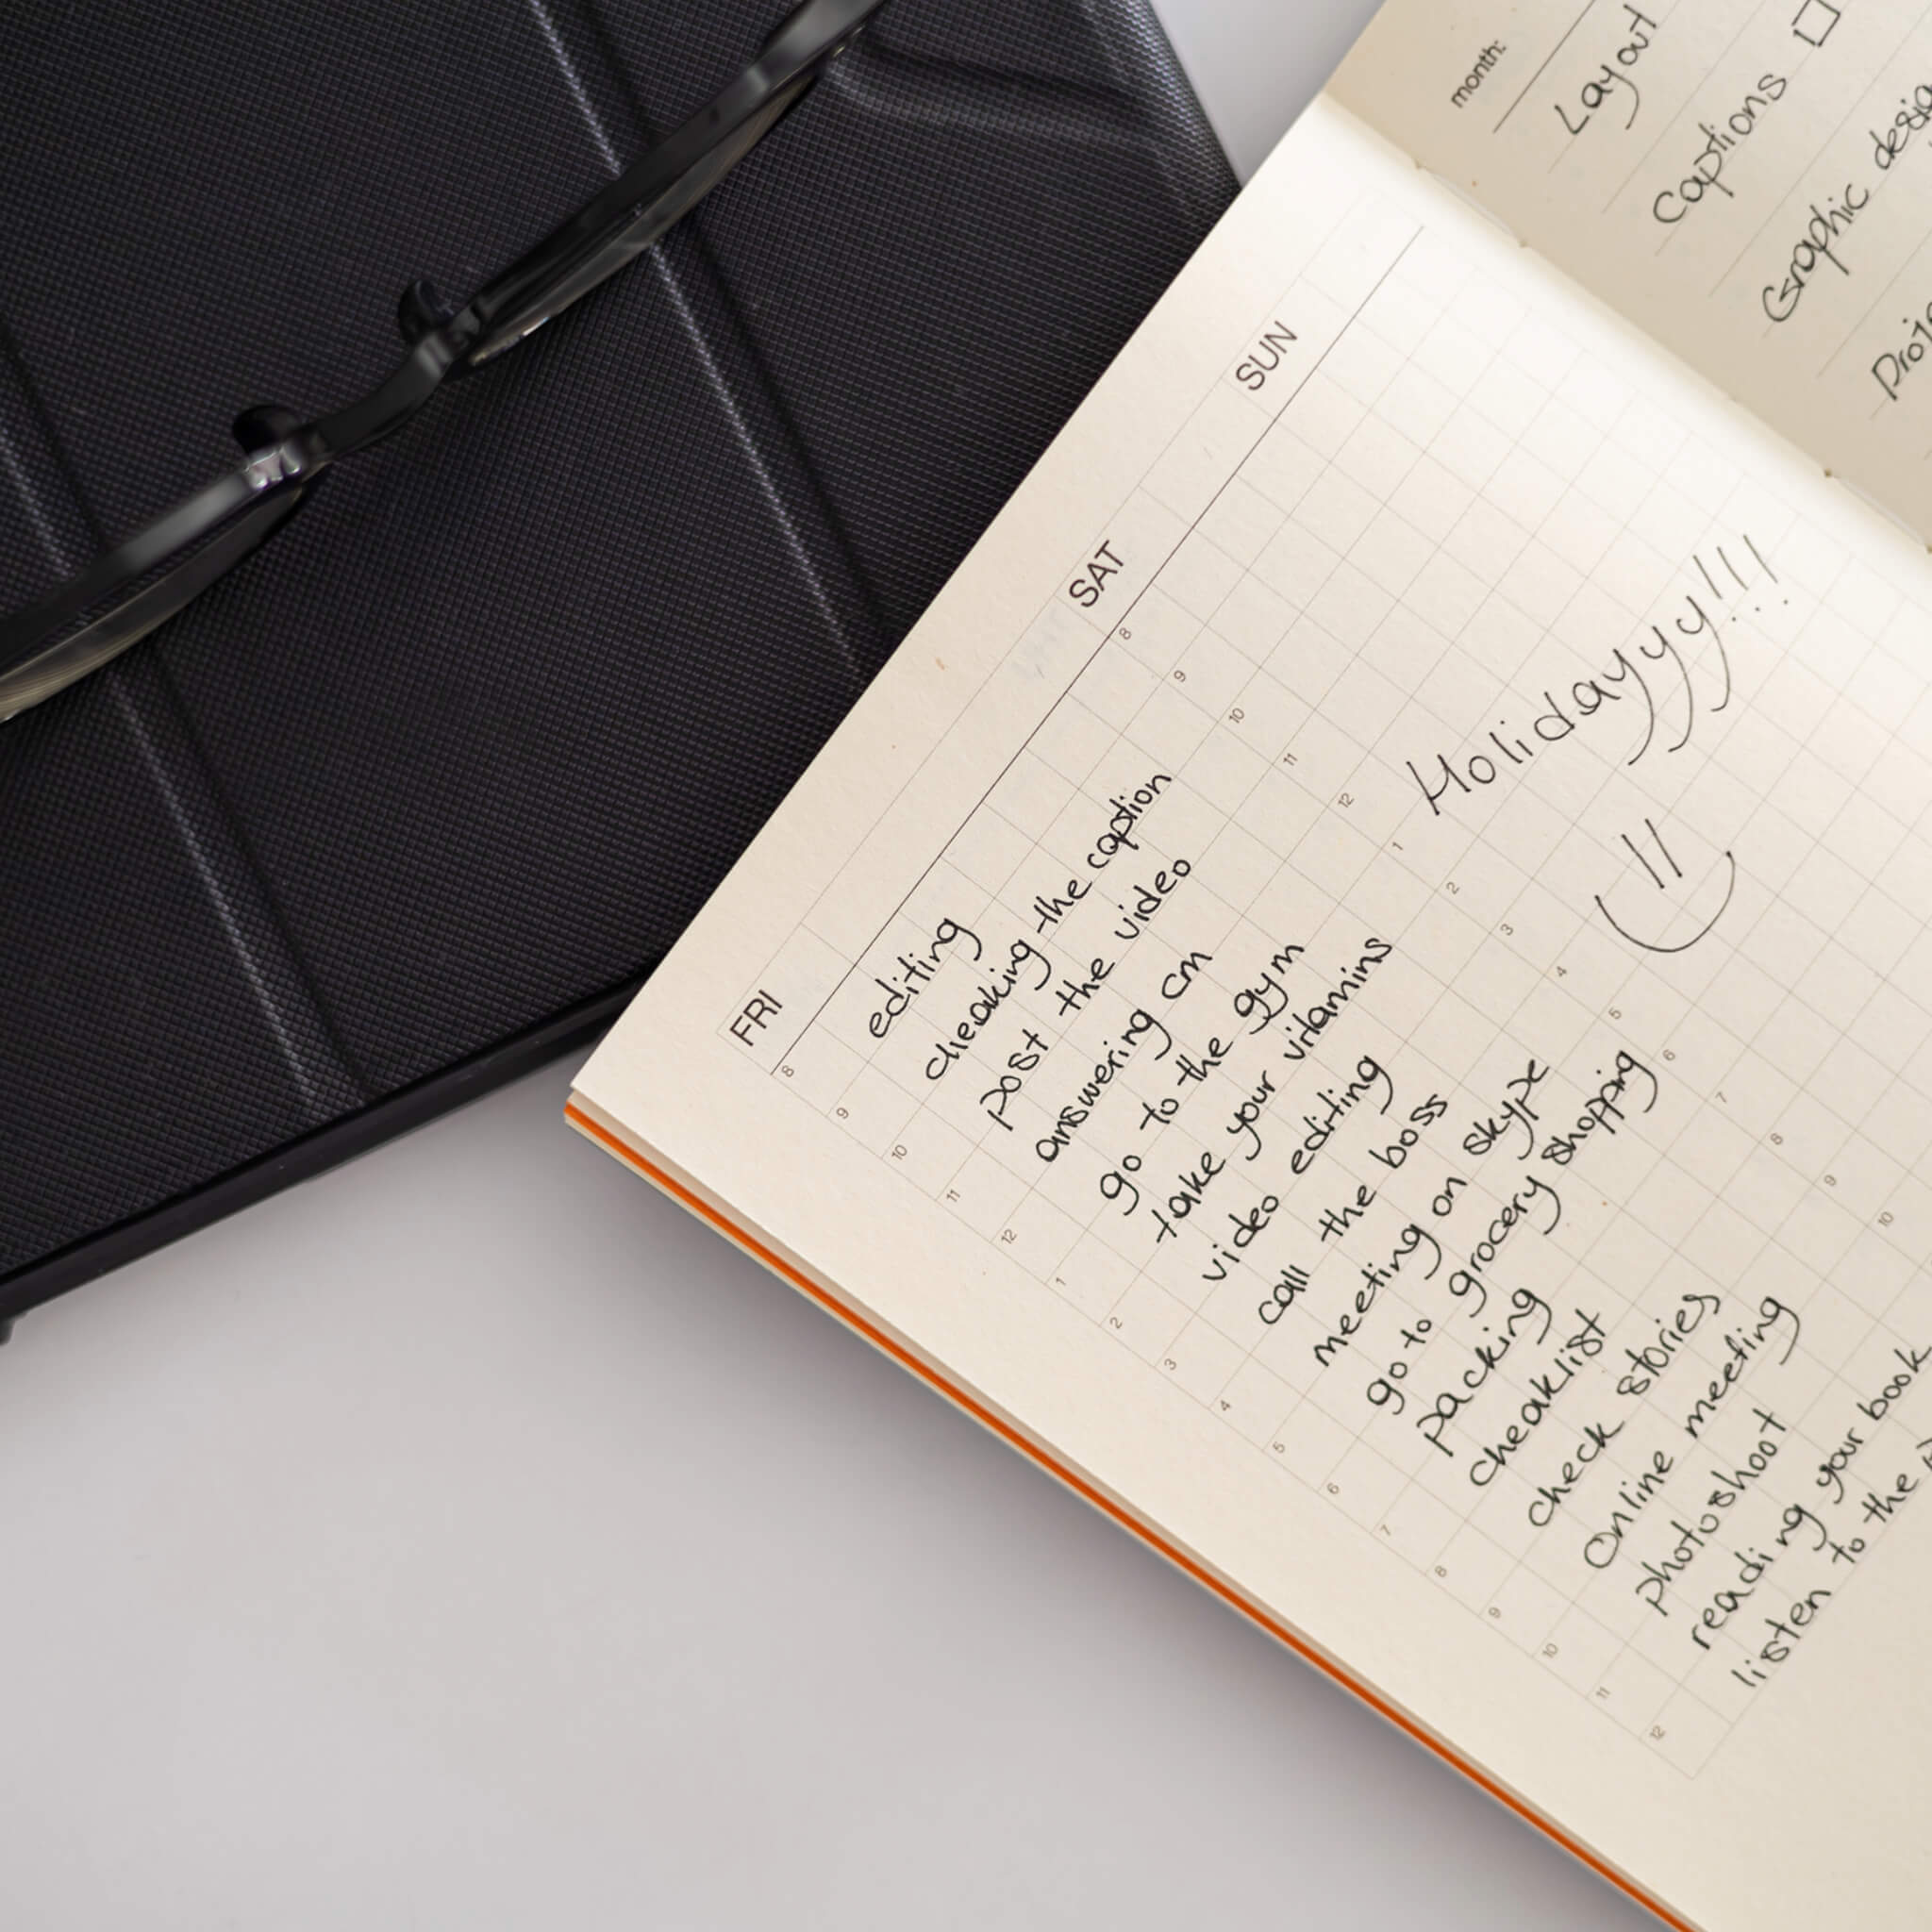 month:
Layout
Captions
Graphic
FRI
SAT
SUN
8
9
10
11
12
1
2
3
4
5
6
7
8
9
10
11
12
editing
cheaking the caption
post the video
answering cm
go to the gym
take your vitamins
video editing
call the boss
meeting on skype
go to grocery shopping
packing
cheaklist
check stories
Online meeting
photoshoot
reading your book
listen to the
8
9
10
11
12
1
2
3
4
5
6
7
8
9
10
Holidayyy!!!